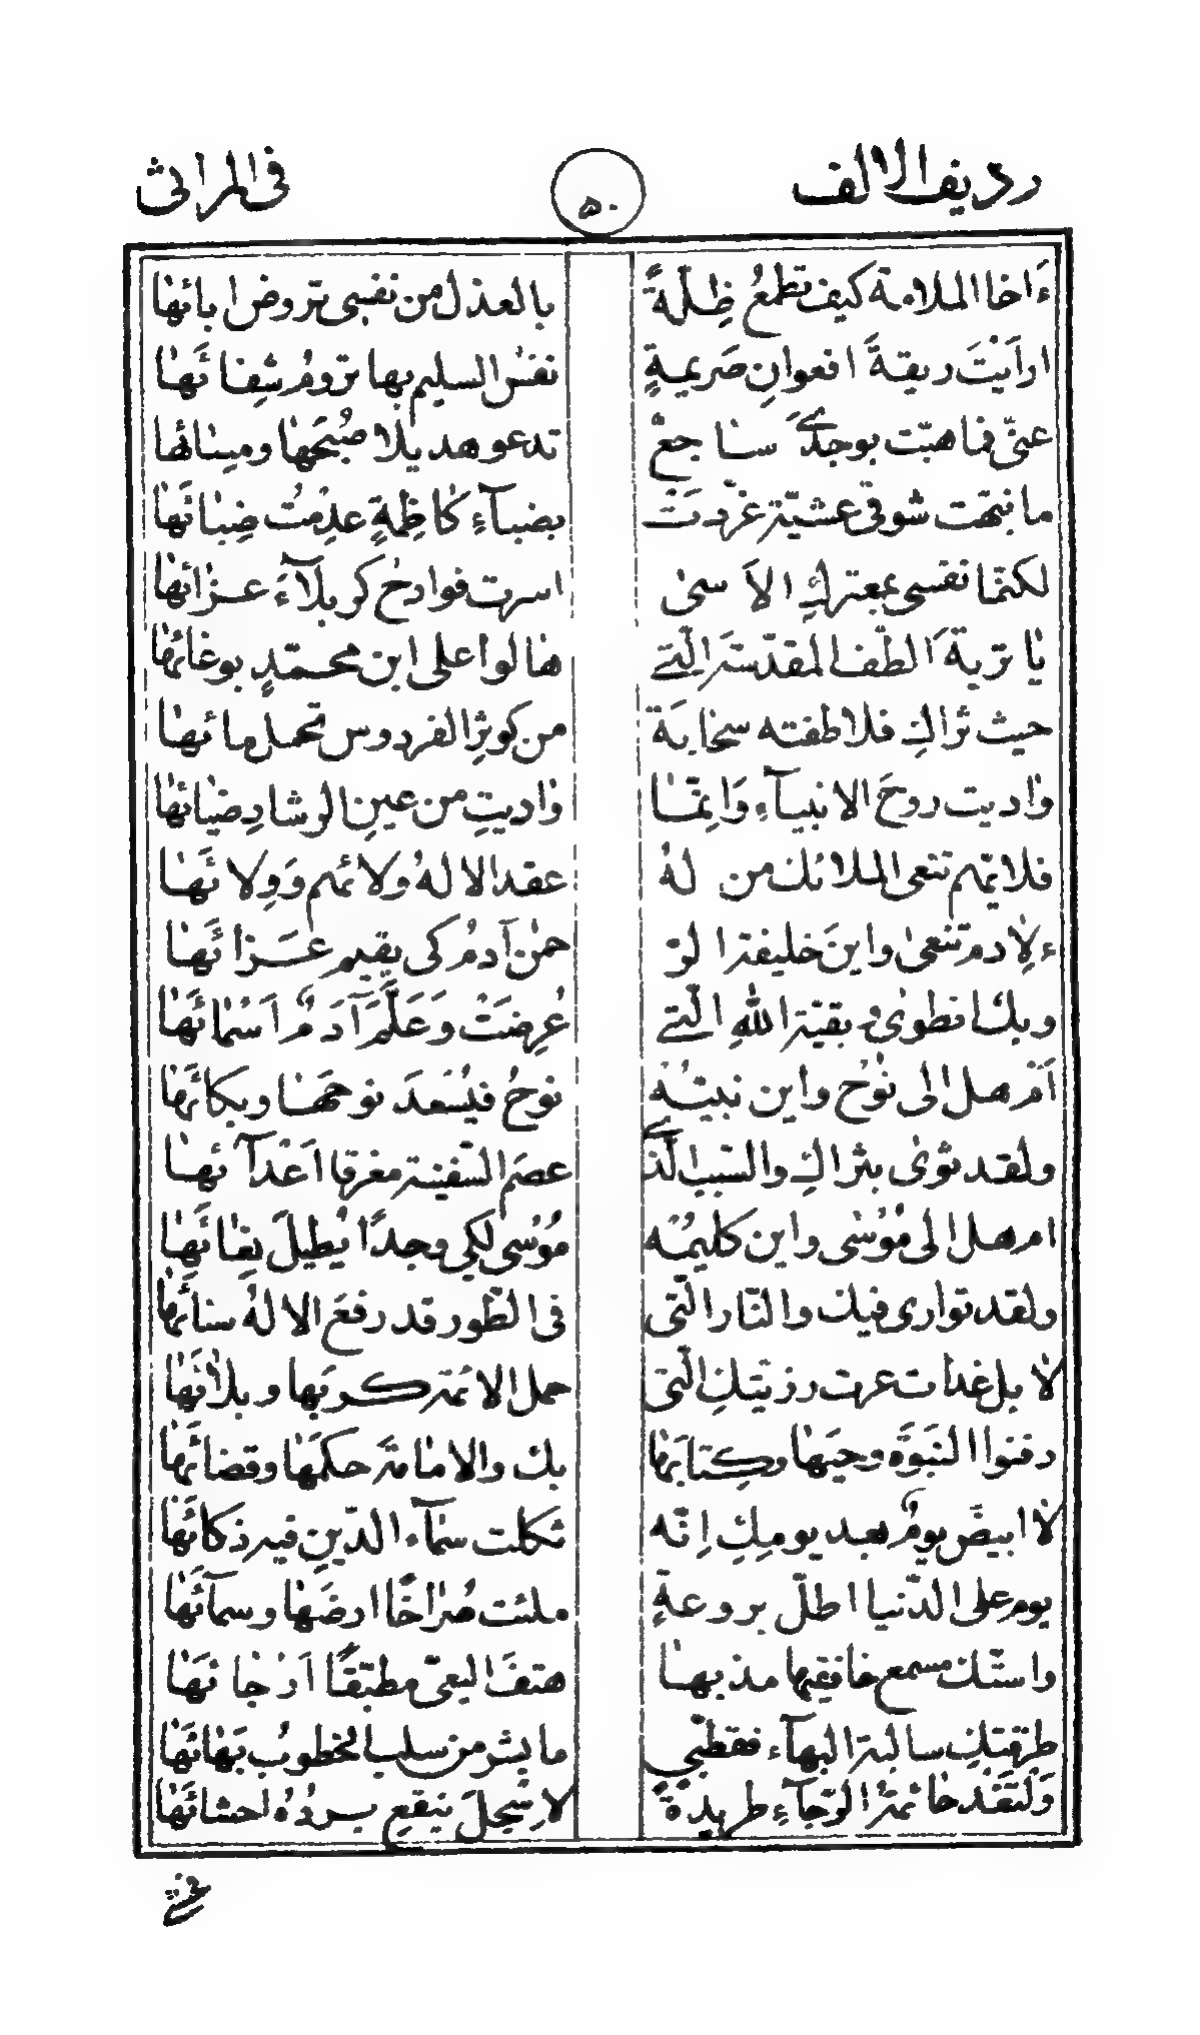 رديف الالف ٥٠ في المراثي
ءَاخا الملامة كيف تطمعُ ضِلّةً بالعذل من نفسي تروض ابائها
ارأيْتَ ريقةَ افعوانِ صَريمةٍ نفسُ السليم بها ترومُ شِفائَها
عنّي فما هبّت بوجدي سَاجعْ تدعو هديلا صُبْحَها ومسائها
ما نبّهت شوقي عشيّة غرّدت بضباءِ كاظِمةٍ عدِمْتُ ضِبائَها
لكنّما نفسي بمعترك الأَسى اسرت فوادحُ كربلآءَ عزائها
يا تربة الطّف المقدّسة الّتي هالوا على ابن محمّدٍ بوغائها
حيث ثراكِ فلاطفته سحابَة من كوثر الفردوس تحمل مائها
واريت روحَ الانبيآءِ وَانّمَا واريتِ من عينِ الرشادِ ضيائها
فلايّهم تنعى الملائك من لهُ عقد الالهُ ولائهم وَوِلائَها
ءلآدم تنعى واينَ خليفة الر حمن آدمُ كي يقيم عَزائَها
وبك انطوى وبقيّة اللهِ الّتي عُرِضَتْ وَعَلَّمَ آدَمُ اَسْمائَها
اَمْ هل الى نُوْح واين نبيّهُ نوحُ فيُسْعدَ نوحَها وبكائَها
ولقد ثوى بثراكِ والسّببِ الّذي عصَم السّفينة مغرقا اَعْدآئها
ام هل الى مُوسى واين كليمُهُ مُوسى لكي وجدًا يُطيلَ نِعائَها
ولقد توارى فيك والنّار الّتى فى الطّور قد رفعَ الالهُ سنائَها
لا بل غداة عرت رزيتكِ الّتي حمل الائمّة كربَها وبلائَها
دفنوا النبوّة وحيَها وكِتابَها بك والامامة حكمَها وقضائَها
لا ابيضّ يومُ بعد يومِكِ اِنّه ثكلت سمآء الدّينِ فيه ذكائَها
يوم على الدّنيا اطلّ بروعةٍ ملئت صُراخًا ارضَها وسمآئَها
واستكّ مسمع خافقيها مذ بها هتفَ النعيّ مطبّقًا اَرْجائَها
طرقتكِ سالبة البهآء فقطّبي ما بشر من سلب الخطوبُ بَهائَها
وَلتغْد حائمة الرّجآءِ طريدةً لا سَجلَ ينقع بردُهُ احشائَها